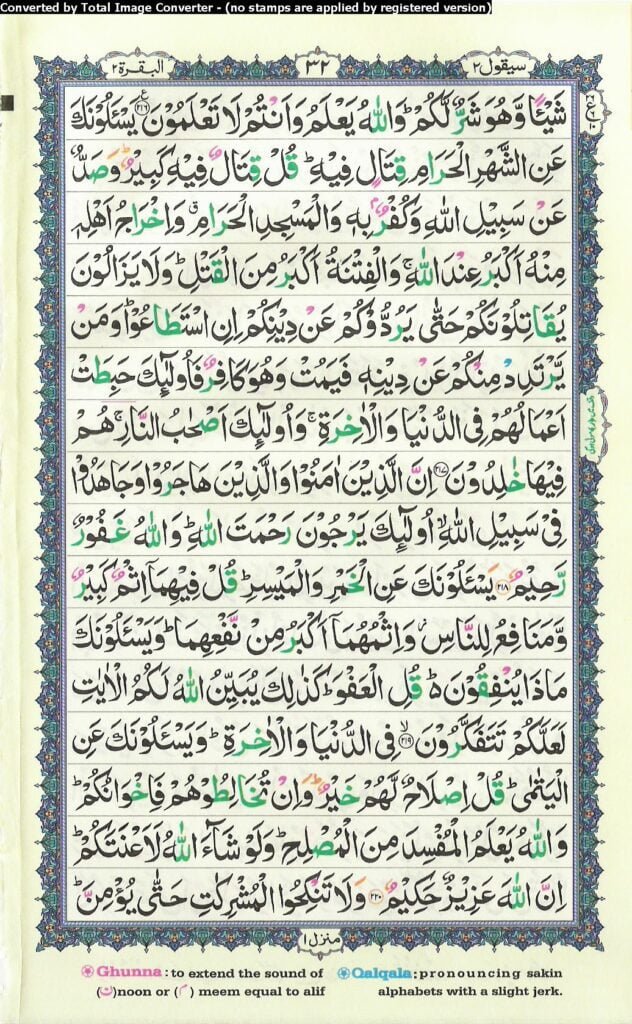 Converted by Total Image Converter - (no stamps are applied by registered version)
البقرة ٢
٣٢
سيقول ٢
شَيْئًا وَّهُوَ شَرٌّ لَّكُمْ ؕ وَاللّٰهُ يَعْلَمُ وَاَنْتُمْ لَا تَعْلَمُوْنَ ﴿۲۱۶﴾ يَسْـَٔلُوْنَكَ
عَنِ الشَّهْرِ الْحَرَامِ قِتَالٍ فِيْهِ ؕ قُلْ قِتَالٌ فِيْهِ كَبِيْرٌ ؕ وَصَدٌّ
عَنْ سَبِيْلِ اللّٰهِ وَكُفْرٌۢ بِهٖ وَالْمَسْجِدِ الْحَرَامِ ۗ وَاِخْرَاجُ اَهْلِهٖ
مِنْهُ اَكْبَرُ عِنْدَ اللّٰهِ ۚ وَالْفِتْنَةُ اَكْبَرُ مِنَ الْقَتْلِ ؕ وَلَا يَزَالُوْنَ
يُقَاتِلُوْنَكُمْ حَتّٰى يَرُدُّوْكُمْ عَنْ دِيْنِكُمْ اِنِ اسْتَطَاعُوْا ؕ وَمَنْ
يَّرْتَدِدْ مِنْكُمْ عَنْ دِيْنِهٖ فَيَمُتْ وَهُوَ كَافِرٌ فَاُولٰٓئِكَ حَبِطَتْ
اَعْمَالُهُمْ فِى الدُّنْيَا وَالْاٰخِرَةِ ۚ وَاُولٰٓئِكَ اَصْحٰبُ النَّارِ ۚ هُمْ
فِيْهَا خٰلِدُوْنَ ﴿۲۱۷﴾ اِنَّ الَّذِيْنَ اٰمَنُوْا وَالَّذِيْنَ هَاجَرُوْا وَجَاهَدُوْا
فِىْ سَبِيْلِ اللّٰهِ ۙ اُولٰٓئِكَ يَرْجُوْنَ رَحْمَتَ اللّٰهِ ؕ وَاللّٰهُ غَفُوْرٌ
رَّحِيْمٌ ﴿۲۱۸﴾ يَسْـَٔلُوْنَكَ عَنِ الْخَمْرِ وَالْمَيْسِرِ ؕ قُلْ فِيْهِمَاۤ اِثْمٌ كَبِيْرٌ
وَّمَنَافِعُ لِلنَّاسِ ۫ وَاِثْمُهُمَاۤ اَكْبَرُ مِنْ نَّفْعِهِمَا ؕ وَيَسْـَٔلُوْنَكَ
مَاذَا يُنْفِقُوْنَ ؕ۬ قُلِ الْعَفْوَ ؕ كَذٰلِكَ يُبَيِّنُ اللّٰهُ لَكُمُ الْاٰيٰتِ
لَعَلَّكُمْ تَتَفَكَّرُوْنَ ۙ﴿۲۱۹﴾ فِى الدُّنْيَا وَالْاٰخِرَةِ ؕ وَيَسْـَٔلُوْنَكَ عَنِ
الْيَتٰمٰى ؕ قُلْ اِصْلَاحٌ لَّهُمْ خَيْرٌ ؕ وَاِنْ تُخَالِطُوْهُمْ فَاِخْوَانُكُمْ ؕ
وَاللّٰهُ يَعْلَمُ الْمُفْسِدَ مِنَ الْمُصْلِحِ ؕ وَلَوْ شَآءَ اللّٰهُ لَاَعْنَتَكُمْ ؕ
اِنَّ اللّٰهَ عَزِيْزٌ حَكِيْمٌ ﴿۲۲۰﴾ وَلَا تَنْكِحُوا الْمُشْرِكٰتِ حَتّٰى يُؤْمِنَّ ؕ
منزل ١
Ghunna : to extend the sound of
(ن) noon or (م) meem equal to alif
Qalqala : pronouncing sakin
alphabets with a slight jerk.